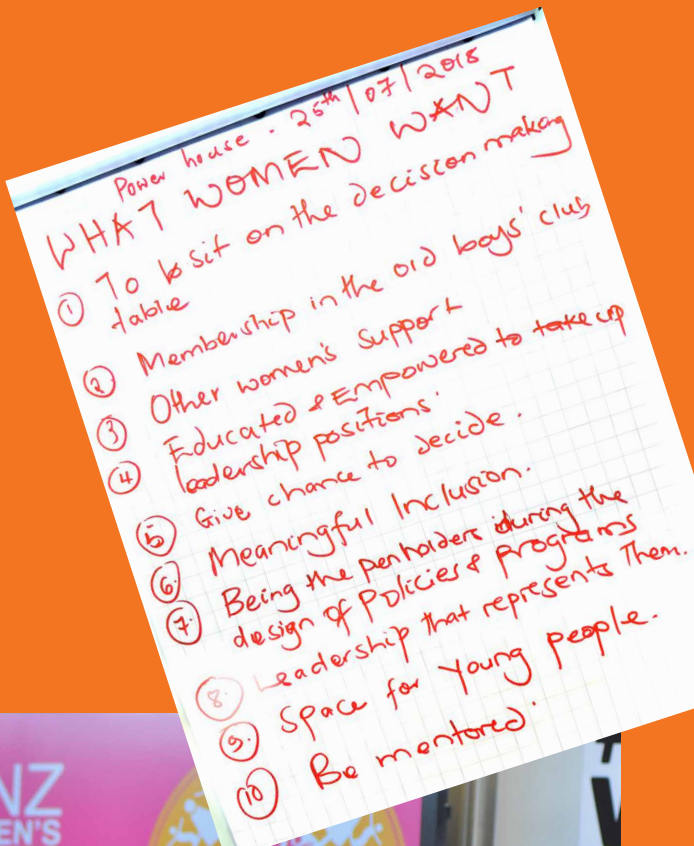 Power house - 25th/07/2018
WHAT WOMEN WANT
① To sit on the decision making
table
② Membership in the old boys' club
③ Other women's support
④ Educated & Empowered to take up
leadership positions.
⑤ Give chance to decide.
⑥ Meaningful Inclusion.
⑦ Being the penholders during the
design of Policies & programs
⑧ Leadership that represents Them.
⑨ Space for Young people.
⑩ Be mentored.
NZ
EN'S